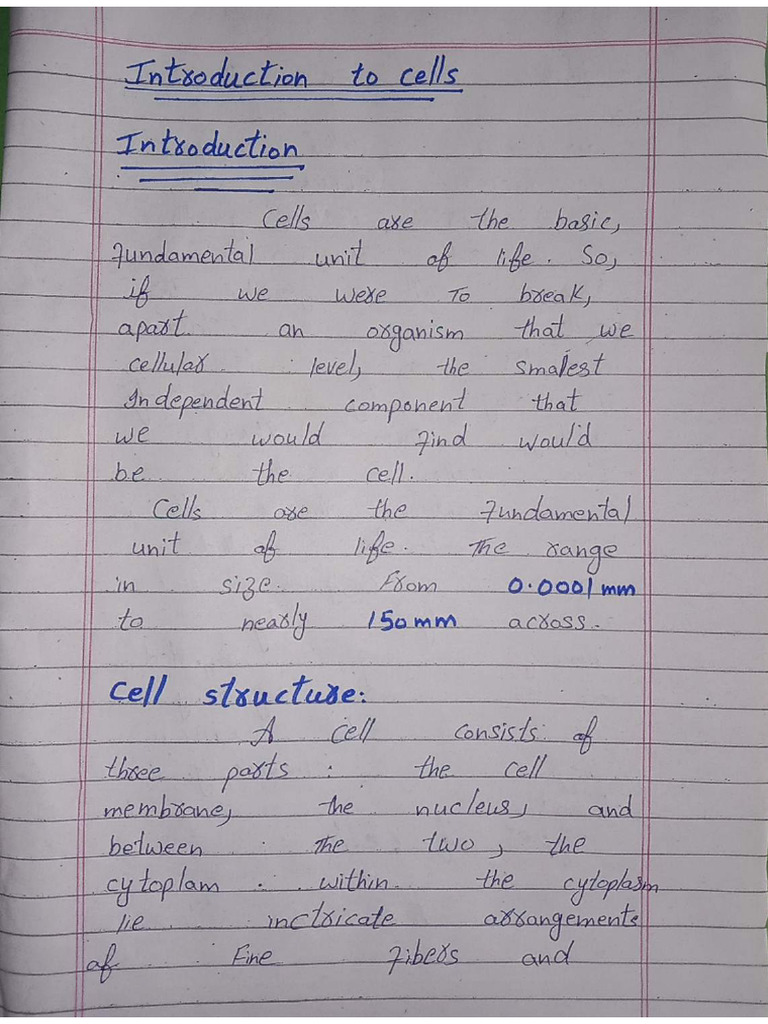 Introduction to cells
Introduction
Cells are the basic,
fundamental unit of life. So,
if we were To break,
apart an organism that we
cellular level, the smalest
Independent component that
we would find would
be the cell.
Cells are the fundamental
unit of life. The range
in size. From 0.0001 mm
to nearly 150 mm across.
Cell structure:
A cell consists of
three parts : the cell
membrane, the nucleus, and
between the two, the
cytoplam. within the cytoplasm
lie inctricate arrangements
of Fine fibers and